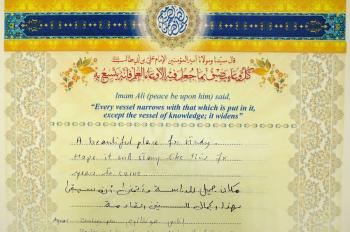 قال سيدنا ومولانا أمير المؤمنين الإمام علي بن أبي طالب
كل وعاء يضيق بما جعل فيه إلا وعاء العلم فإنه يتسع به
Imam Ali (peace be upon him) said,
"Every vessel narrows with that which is put in it,
except the vessel of knowledge; it widens"
A beautiful place for study.
Hope it will stay like this for
years to come
مكان جميل للدراسة ونتمنى أن يبقى
بهذا الجمال للسنين القادمة